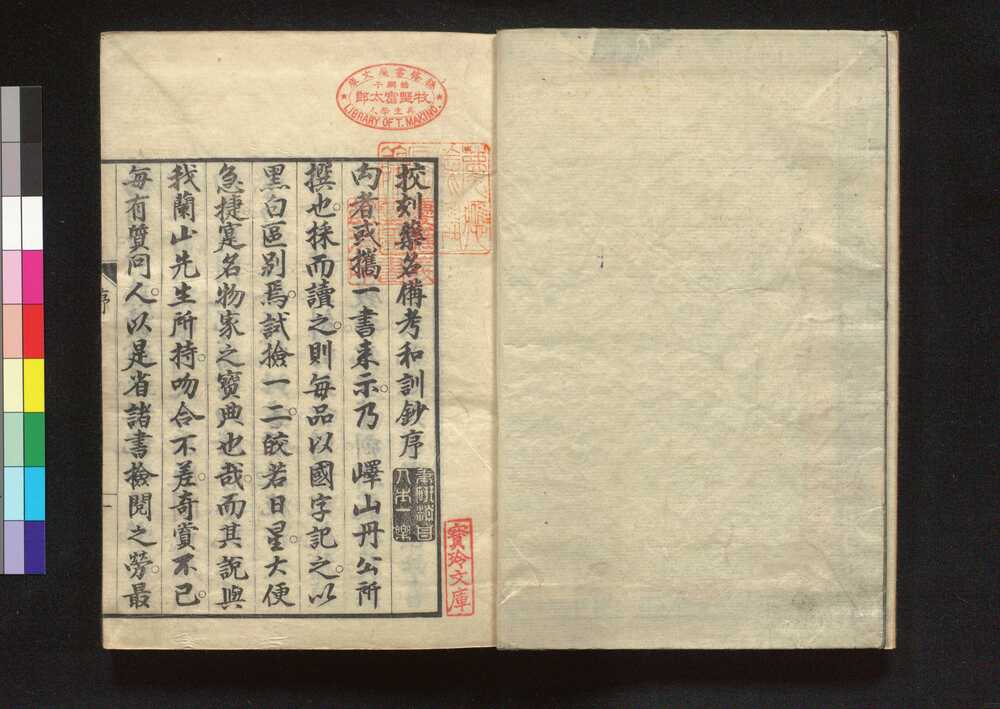 挍刻藥名備考和訓鈔序
向者或攜一書来示。乃 嶧山丹公所
撰也。採而讀之。則每品以國字記之。以
黑白區別焉。試撿一二。皎若日星。大便
急捷寔名物家之寶典也哉。而其說與
我蘭山先生所持。吻合不差。奇賞不已。
每有質问人。以是省諸書撿閱之劳。最
序
一
牧野富太郎
LIBRARY OF T. MAKINO.
寶玲文庫